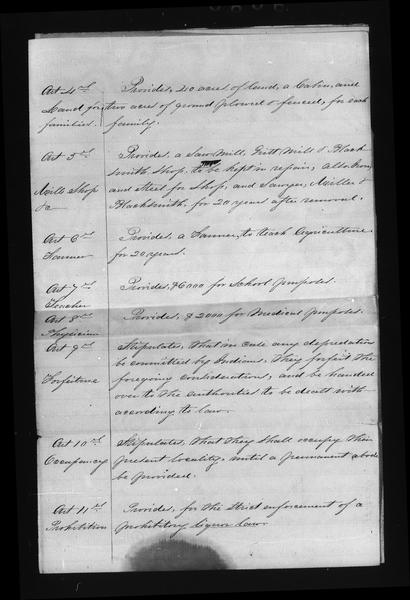 Art 4th Provides, 40 acres of land, a Cabin, and
Land for two acres of ground plowed & fenced, for each
families. family.
Art 5th Provides, a Saw Mill, Grist Mill & Black-
smith Shop, to be kept in repair, also Iron,
Mills Shop and Steel for Shop, and Sawyer, Miller &
&c Blacksmith, for 20 years after removal.
Art 6th Provides, a Farmer, to teach Agriculture
Farmer for 20 years.
Art 7th Provides, $6000 for School purposes.
Teacher
Art 8th Provides, $2000 for Medical purposes.
Physician
Art 9th Stipulates, that in case any depredation
be committed by Indians. They forfeit the
Forfeiture foregoing consideration, and be handed
over to the authorities to be dealt with
according to law.
Art 10th Stipulates, that they shall occupy their
Occupancy present locality, until a permanent abode
be provided.
Art 11th Provides, for the strict enforcement of a
Prohibition prohibitory liquor law.